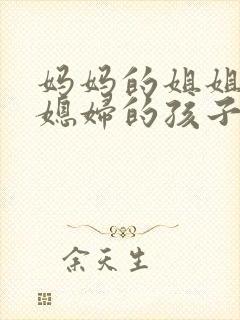 妈妈的姐姐
媳妇的孩子
余天生